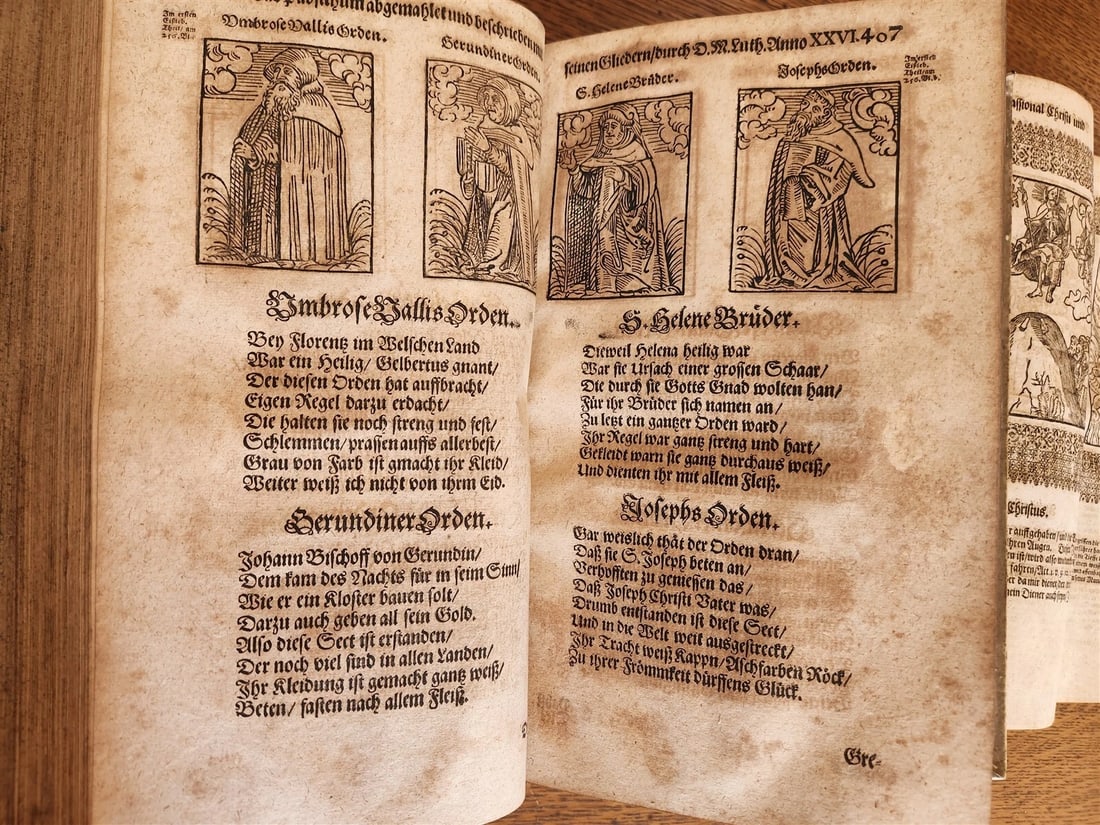 abgemahlet und beschrieben
Vmbrose Vallis Orden.
Gerundiner Orden.
Vmbrose Vallis Orden.
Bey Florentz im Welschen Land
War ein Heilig/ Gelbertus gnant/
Der diesen Orden hat auffbracht/
Eigen Regel darzu erdacht/
Die halten sie noch streng und fest/
Schlemmen/ prassen auffs allerbest/
Grau von Farb ist gmacht ihr Kleid/
Weiter weiß ich nicht von ihrm Eid.
Gerundiner Orden.
Johann Bischoff von Gerundin/
Dem kam des Nachts für in seim Sinn/
Wie er ein Kloster bauen solt/
Darzu auch geben all sein Gold.
Also diese Sect ist erstanden/
Der noch viel sind in allen Landen/
Ihr Kleidung ist gemacht gantz weiß/
Beten/ fasten nach allem Fleiß.
seinen Gliedern/ durch D. M. Luth. Anno XXVI. 407
S. Helene Brüder.
Josephs Orden.
S. Helene Brüder.
Dieweil Helena heilig war
War sie Ursach einer grossen Schaar/
Die durch sie Gotts Gnad wolten han/
Für ihr Brüder sich namen an/
Zu letzt ein gantzer Orden ward/
Ihr Regel war gantz streng und hart/
Gekleidt warn sie gantz durchaus weiß/
Und dienten ihr mit allem Fleiß.
Josephs Orden.
Gar weislich thät der Orden dran/
Daß sie S. Joseph beten an/
Verhofften zu geniessen das/
Daß Joseph Christi Vater was/
Drumb entstanden ist diese Sect/
Und in die Welt weit ausgestreckt/
Ihr Tracht weiß Kappn/ Aschfarben Röck/
Zu ihrer Frömmkeit dürffens Glück.
Gre-
Passional Christi und
Christus.